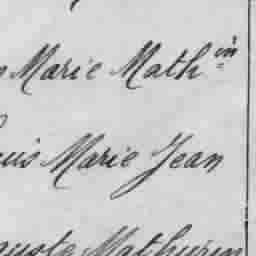 Marie Math in
uis Marie Jean
guste Mathurin